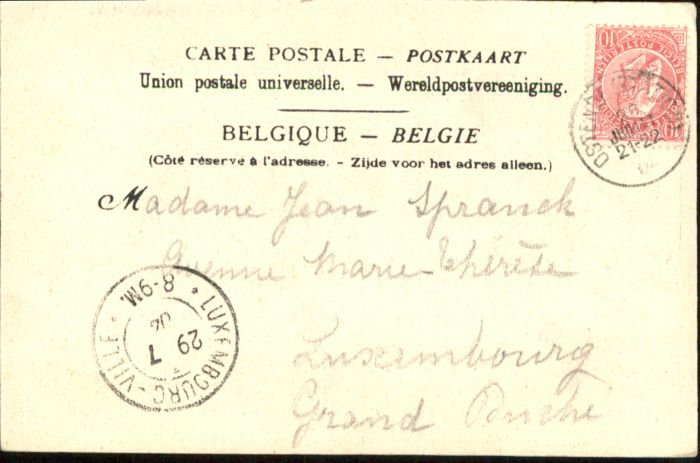 CARTE POSTALE — POSTKAART
Union postale universelle. — Wereldpostvereeniging.
BELGIQUE — BELGIE
(Côté réservé à l'adresse. - Zijde voor het adres alleen.)
Madame Jean Spranck
Avenue Marie-Thérèse
Luxembourg
Grand Duché
10 10
10
21-22
LUXEMBOURG-VILLE
8-9M.
29 7
04